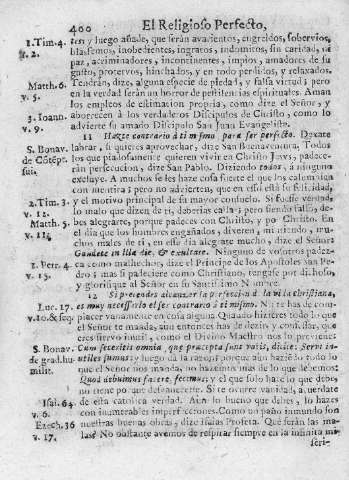 400 El Religioso Perfecto,
1.Tim.4. tes; y luego añade, que serán avarientos, engreídos, sobervios,
v. 2. blasfemos, inobedientes, ingratos, indomitos, sin caridad, ni
paz, acriminadores, incontinentes, impios, amadores de su
gusto, protervos, hinchados, y en todo perdidos, y relaxados.
Matth. 6. Tendrán, dize, alguna especie de piedad, y falsa virtud; pero
v. 5. en la verdad serán un horror de pestilencias espirituales. Aman
los empleos de estimacion propria, como dize el Señor, y
3. Joann. aborrecen à los verdaderos Discipulos de Christo, como lo
v. 9. advierte su amado Discipulo San Juan Evangelista.
11 Hazte contrario à ti mismo, para ser perfecto. Dexate
S. Bonav. labrar, si quieres aprovechar, dize San Buenaventura. Todos
de Cõtẽpt. los que piadosamente quieren vivir en Christo Jesus, padece-
sui. rán persecucion, dize San Pablo. Diziendo todos, à ninguno
excluye. A muchos se les haze cosa fuerte el que los calumnien
con mentira; pero no advierten, que en esso está su felicidad,
2. Tim. 3. y el motivo principal de su mayor confuelo. Si fuesse verdad
v. 12. lo malo que dizen de ti, deberias callar; pero siendo falso, de-
Matth. 5. bes alegrarte, porque padeces con Christo, y por Christo. En
v. 11. el dia que los hombres engañados, dixeren, mintiendo, mu-
chos males de ti, en esse dia alegrate mucho, dize el Señor:
Gaudete in illa die, & exultate. Ninguno de vosotros padez-
1. Petr. 4. ca como malhechor, dize el Principe de los Apostoles San Pe-
v. 15. dro; mas si padeciere como Christiano, tengase por dichoso,
y glorifique al Señor en su Santissimo Nombre.
12 Si pretendes alcanzar la perfeccion de la vida Christiana,
Luc. 17. es muy necessario el ser contrario à ti mismo. No te has de com-
v. 10. & seq. placer vanamente en cosa alguna. Quando hizieres todo lo que
el Señor te manda, aun entonces has de dezir, y confessar, que
eres siervo inutil, como el Divino Maestro nos lo previene:
S. Bonav. Cum feceritis omnia, quæ præcepta sunt vobis, dicite: Servi in-
de grad.hu- utiles sumus; y luego dà la razon; porque aun haziendo todo lo
milit. que el Señor nos manda, no hazemos mas de lo que debemos:
Quod debuimus facere, fecimus; y el que solo haze lo que debe,
no tiene por què desvanecerse. Si te ocurre vanidad, acuerdate
Isai. 64. de esta catolica verdad. Aun lo bueno que debes, lo hazes
v. 6. con innumerables imperfecciones. Como un paño inmundo son
Ezech. 36 nuestras buenas obras, dize Isaías Profeta. Què serán las ma-
v. 17. las? No obstante avemos de respirar siempre en la infinita mi-
seri-